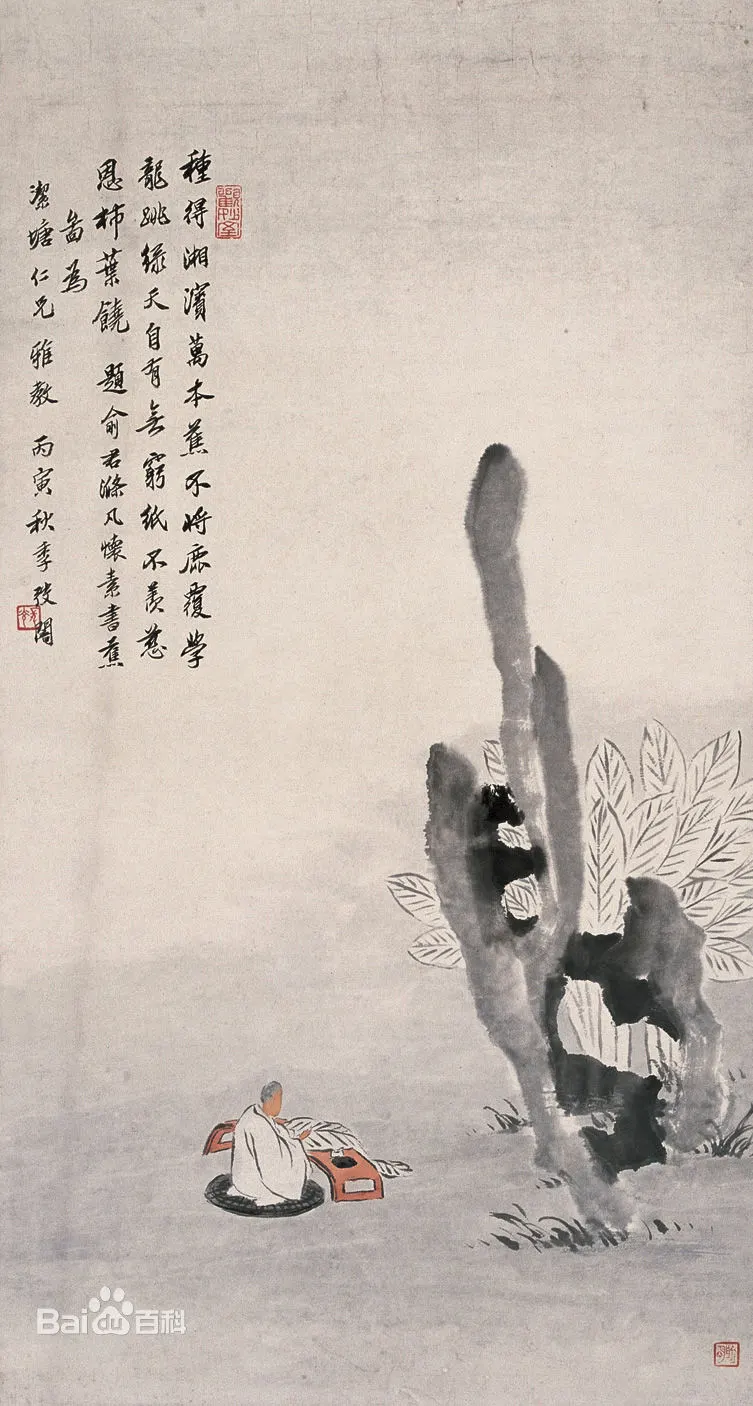 種得湘濱萬本蕉不將鹿覆學
龍跳綠天自有無窮紙不羨慈
恩柿葉饒 題俞君滌凡懷素書蕉
圖為
潔塘仁兄雅教 丙寅秋季弢闇
Bai百科